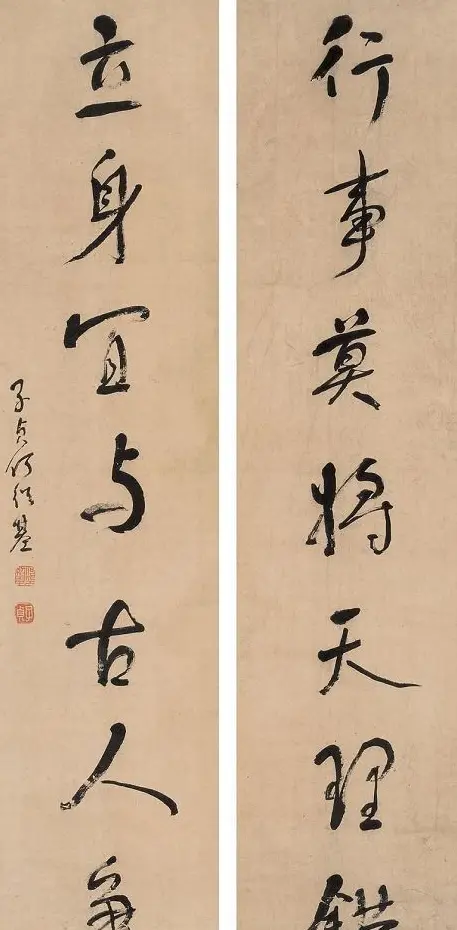 行事莫将天理錯
立身宜与古人爭
子貞何紹基